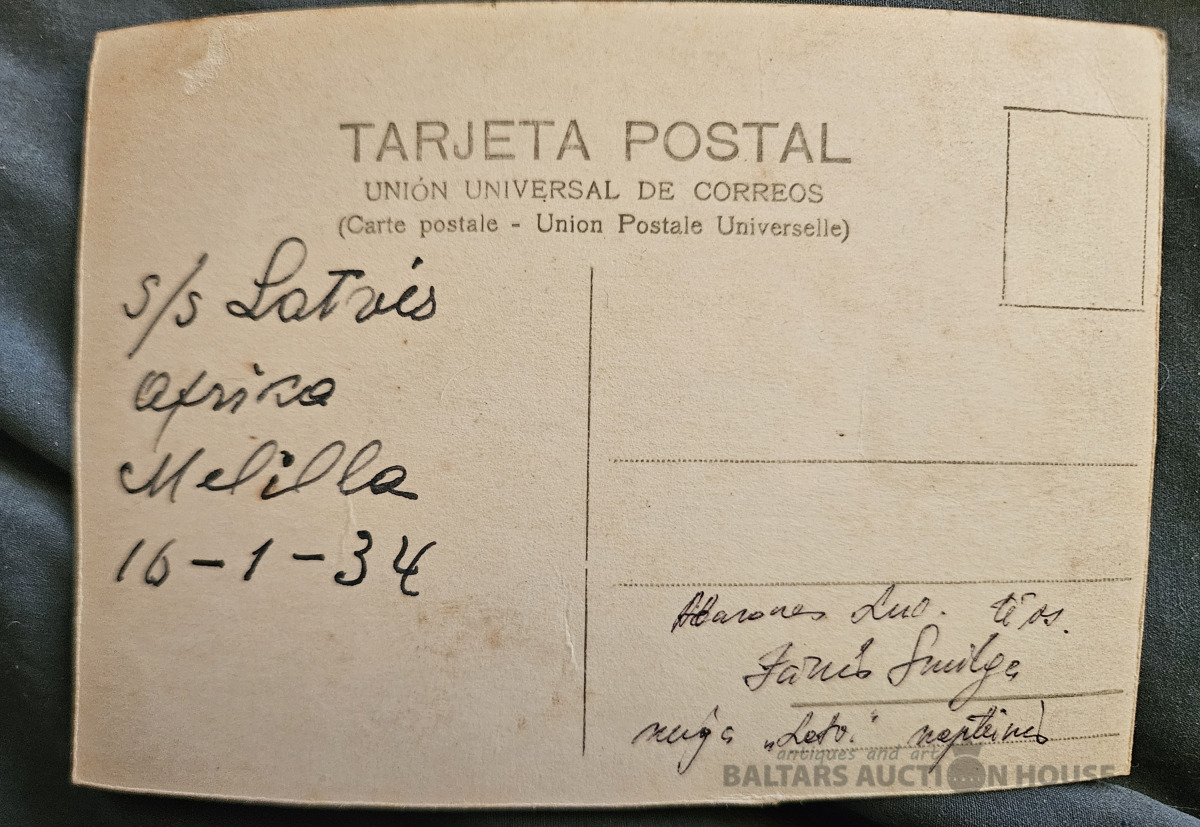 TARJETA POSTAL
UNIÓN UNIVERSAL DE CORREOS
(Carte postale - Union Postale Universelle)
s/s Latvis
Afrika
Melilla
16-1-34
tēvs.
Jānis Smilga
"Latv." kapteinis
antiques and art
BALTARS AUCTION HOUSE